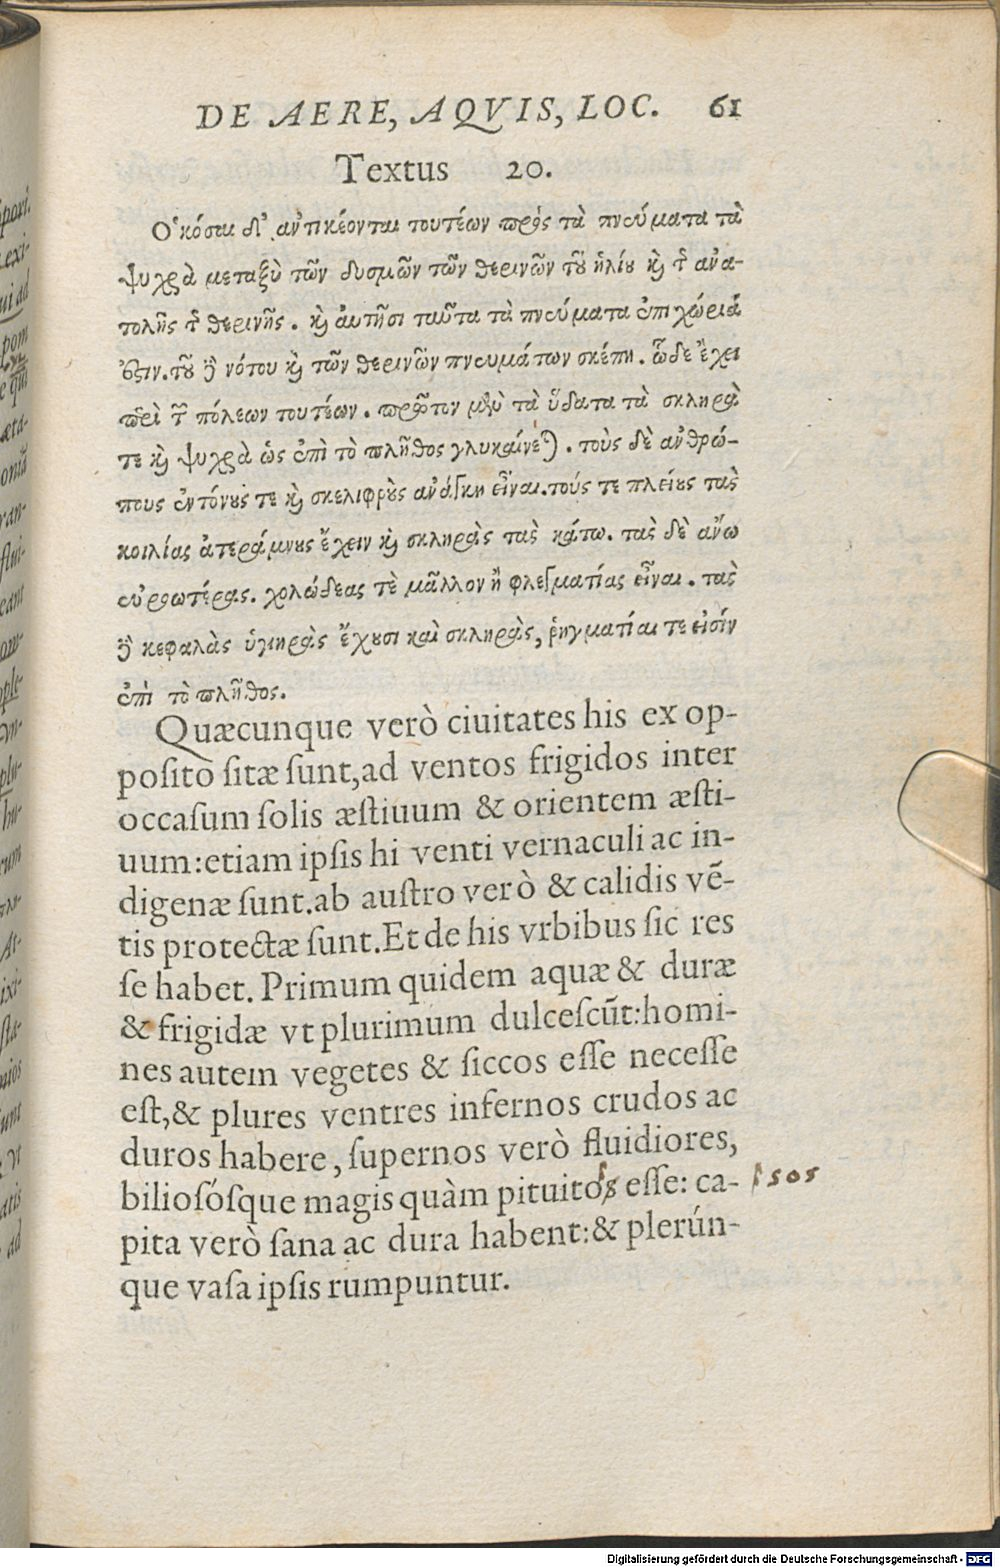 DE AERE, AQVIS, LOC. 61
Textus 20.
Ὁκόσαι δ' ἀντικέονται τουτέων πρὸς τὰ πνεύματα τὰ
ψυχρὰ μεταξὺ τῶν δυσμῶν τῶν θερινῶν τοῦ ἡλίου καὶ τῆς ἀνα-
τολῆς τῆς θερινῆς. καὶ αὐτῇσι ταῦτα τὰ πνεύματα ἐπιχώριά
ἐστιν. τοῦ δὲ νότου καὶ τῶν θερινῶν πνευμάτων σκέπη. ὧδε ἔχει
περὶ τῶν πόλεων τουτέων. πρῶτον μὲν τὰ ὕδατα τὰ σκληρὰ
τε καὶ ψυχρὰ ὡς ἐπὶ τὸ πλῆθος γλυκαίνεται. τοὺς δὲ ἀνθρώ-
πους ἐντόνους τε καὶ σκελιφροὺς ἀνάγκη εἶναι. τούς τε πλείους τὰς
κοιλίας ἀτεράμνους ἔχειν καὶ σκληρὰς τὰς κάτω. τὰς δὲ ἄνω
εὐροωτέρας. χολώδεας τὲ μᾶλλον ἢ φλεγματίας εἶναι. τὰς
δὲ κεφαλὰς ὑγιηρὰς ἔχουσι καὶ σκληρὰς, ῥηγματίαι τε εἰσίν
ἐπὶ τὸ πλῆθος.
Quæcunque verò ciuitates his ex op-
posito sitæ sunt, ad ventos frigidos inter
occasum solis æstiuum & orientem æsti-
uum: etiam ipsis hi venti vernaculi ac in-
digenæ sunt. ab austro verò & calidis vẽ-
tis protectæ sunt. Et de his vrbibus sic res
se habet. Primum quidem aquæ & duræ
& frigidæ vt plurimum dulcescũt: homi-
nes autem vegetes & siccos esse necesse
est, & plures ventres infernos crudos ac
duros habere, supernos verò fluidiores,
biliosósque magis quàm pituitos esse: ca- sos
pita verò sana ac dura habent: & plerún-
que vasa ipsis rumpuntur.
Digitalisierung gefördert durch die Deutsche Forschungsgemeinschaft - DFG